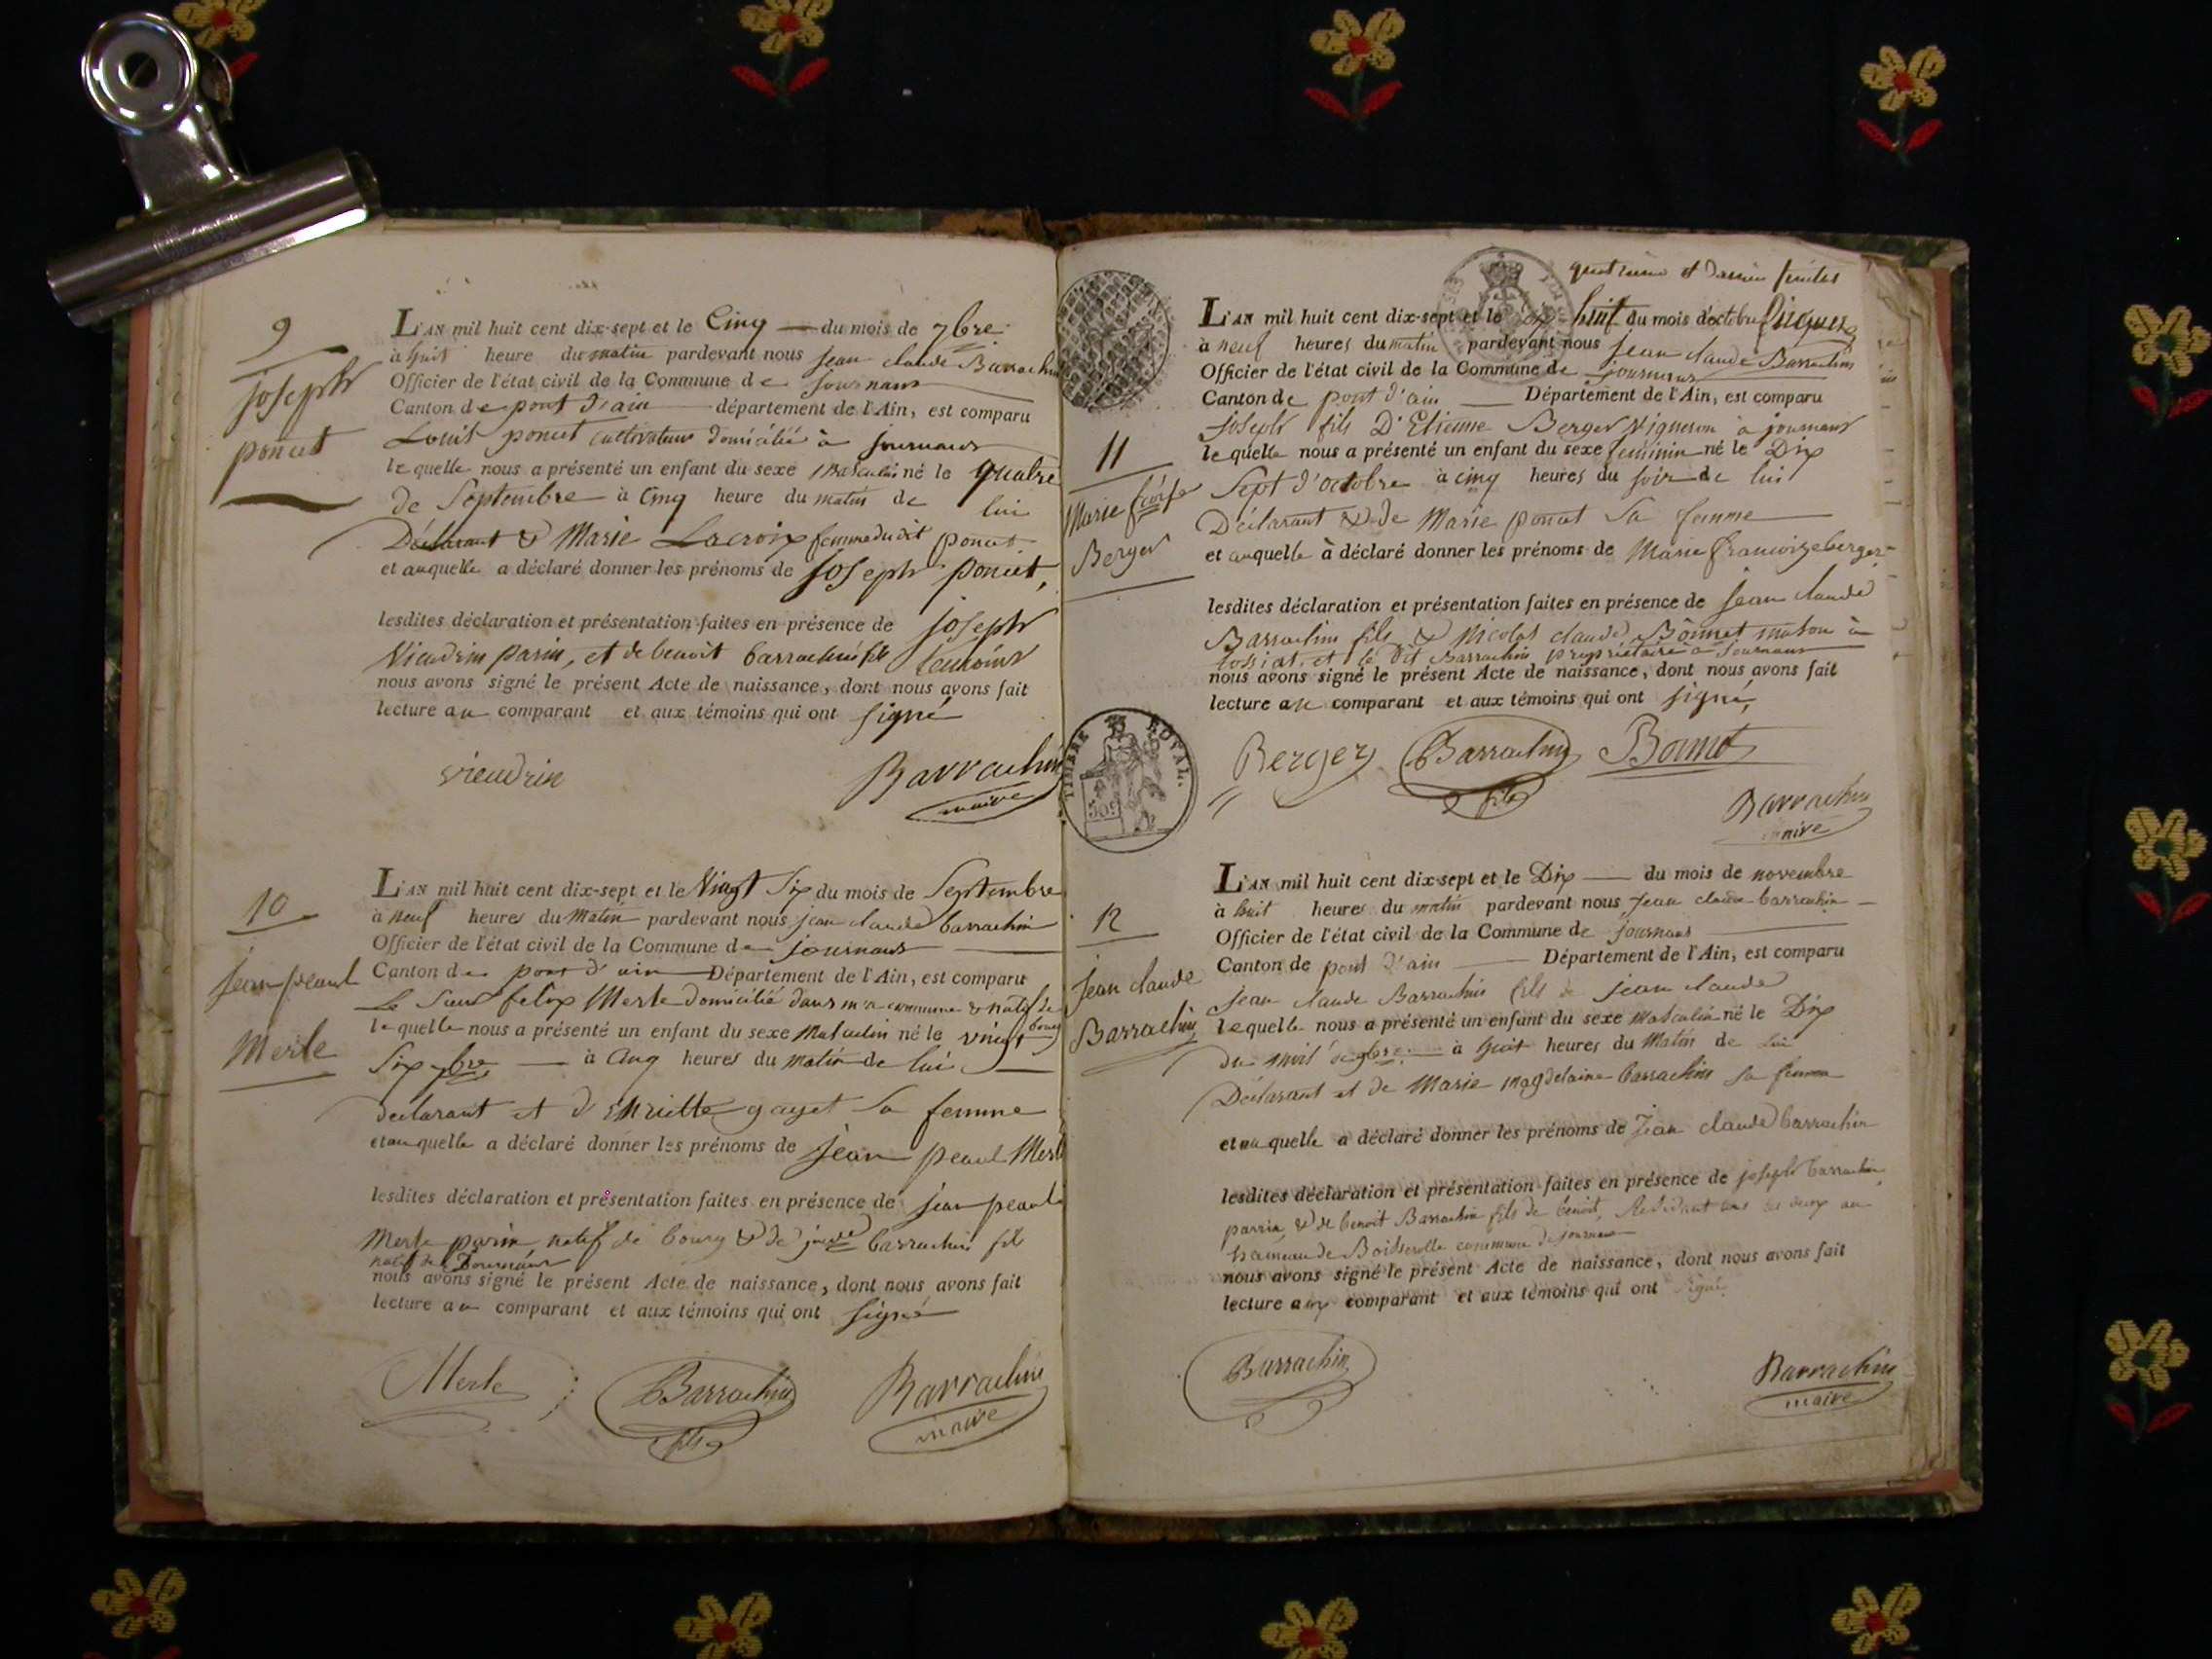 9
joseph
poncet
L'AN mil huit cent dix-sept et le Cinq du mois de 7bre
à huit heure du matin pardevant nous jean claude Barrachin
Officier de l'état civil de la Commune de journans
Canton de pont d'ain département de l'Ain, est comparu
Louis poncet cultivateur domicilié à journans
lequelle nous a présenté un enfant du sexe masculin né le quatre
de Septembre à Cinq heure du matin de lui
Déclarant & Marie Lacroix femme du dit poncet
et auquelle a déclaré donner les prénoms de joseph poncet,
lesdites déclaration et présentation faites en présence de joseph
Vieudrin parin, et de benoit barrachin fils temoins
nous avons signé le présent Acte de naissance, dont nous avons fait
lecture au comparant et aux témoins qui ont signé
vieudrin
Barrachin
maire
10
jean peaul
Merle
L'AN mil huit cent dix-sept et le Vingt Six du mois de Septembre
à neuf heures du Matin pardevant nous jean claude barrachin
Officier de l'état civil de la Commune de journans
Canton de pont d'ain Département de l'Ain, est comparu
Le Sieur felix Merle domicilié dans ma commune & natif de
bourg
lequelle nous a présenté un enfant du sexe Masculin né le vingt
Six 7bre à Cinq heures du matin de lui
declarant et d' gayet sa femme
et auquelle a déclaré donner les prénoms de jean peaul Merle
lesdites déclaration et présentation faites en présence de jean peaul
Merle parin natif de bourg & de barrachin fils
natif de Journans
nous avons signé le présent Acte de naissance, dont nous avons fait
lecture au comparant et aux témoins qui ont signé
Merle
Barrachin
fils
Barrachin
maire
quatrieme et dernier feuillet
TIMBRE ROYAL.
11
Marie
Berger
L'AN mil huit cent dix-sept et le dix huit du mois doctobre
à neuf heures du matin pardevant nous jean claude Barrachin
Officier de l'état civil de la Commune de journans
Canton de pont d'ain Département de l'Ain, est comparu
joseph fils D'Etienne Berger Vigneron à journans
lequelle nous a présenté un enfant du sexe feminin né le Dix
Sept d'octobre à cinq heures du soir de lui
Déclarant & de Marie poncet sa femme
et auquelle à déclaré donner les prénoms de Marie francoize berger
lesdites déclaration et présentation faites en présence de jean claude
Barrachin fils & Nicolas claude Bonnet mason à
tossiat, et le Dit Barrachin propriétaire à Journans
nous avons signé le présent Acte de naissance, dont nous avons fait
lecture au comparant et aux témoins qui ont signé,
Berger
Barrachin
fils
Bonnet
Barrachin
maire
12
jean claude
Barrachin
L'AN mil huit cent dix-sept et le Dix du mois de novembre
à huit heures du matin pardevant nous Jean claude barrachin
Officier de l'état civil de la Commune de journans
Canton de pont d'ain Département de l'Ain, est comparu
Jean claude Barrachin fils de jean claude
lequelle nous a présenté un enfant du sexe masculin né le Dix
du mois de 9bre à huit heures du Matin de lui
Déclarant et de Marie magdelaine barrachin sa femme
et au quelle a déclaré donner les prénoms de Jean claude barrachin
lesdites déclaration et présentation faites en présence de joseph barrachin
parrin, & de benoit Barrachin fils de benoit, Residant tous les deux au
hameau de commune de journans
nous avons signé le présent Acte de naissance, dont nous avons fait
lecture aux comparant et aux témoins qui ont signé
Barrachin
Barrachin
maire